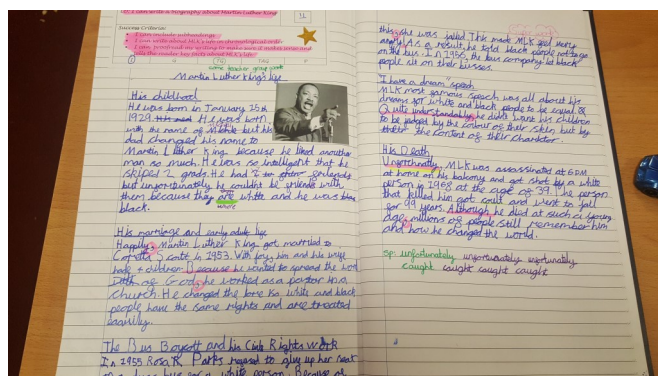 LI: I can write a biography about Martin Luther King
Success Criteria:
I can include subheadings
I can write about MLK's life in chronological order
I can proof read my writing to make sure it makes sense and
tells the reader key facts about MLK's life
some teacher group work
Martin Luther King's life
His childhood
He was born in January 15th
1929. He was born
with the name of Michle but his
dad changed his name to
Martin Luther King because he liked another
man so much. He was so intelligent that he
skiped 2 grads. He had 2 friends
but unfortunately he couldnt be friends with
them because they were white and he was
black.
His marriage and early adult life
Happily, Martin Luther King got married to
Coretta Scott in 1953. With joy, him and his wife
had 4 children. Because he wanted to spread the word
of God, he worked as a pastor in a
church. He changed the laws so white and black
people have the same rights and are treated
equilly.
The Bus Boycott and his Civil Rights work
In 1955 Rosa Parks refused to give up her seat
on a bus for a white person. Because of
this, she was jailed This made MLK feel very
angry. As a result, he told black people not to go
on the bus. In 1956, the bus company let black
people sit on their busses.
"I have a dream" speech
MLK most famous speech was all about his
dreams for white and black people to be equal &
Quite understandably, he didn't want his children
to be judged by the colour of their skin but by
the content of their charictor.
His Death
Unfortunatly, MLK was assassinated at 6PM
at home on his balcony and got shot by a white
person in 1968 at the age of 39. The person
that killed him got cout and went to jail
for 99 years. Although he died at such a young
age, millions of people still remember him
and how he changed the world.
sp: unfortunately unfortunately unfortunately
caught caught caught caught